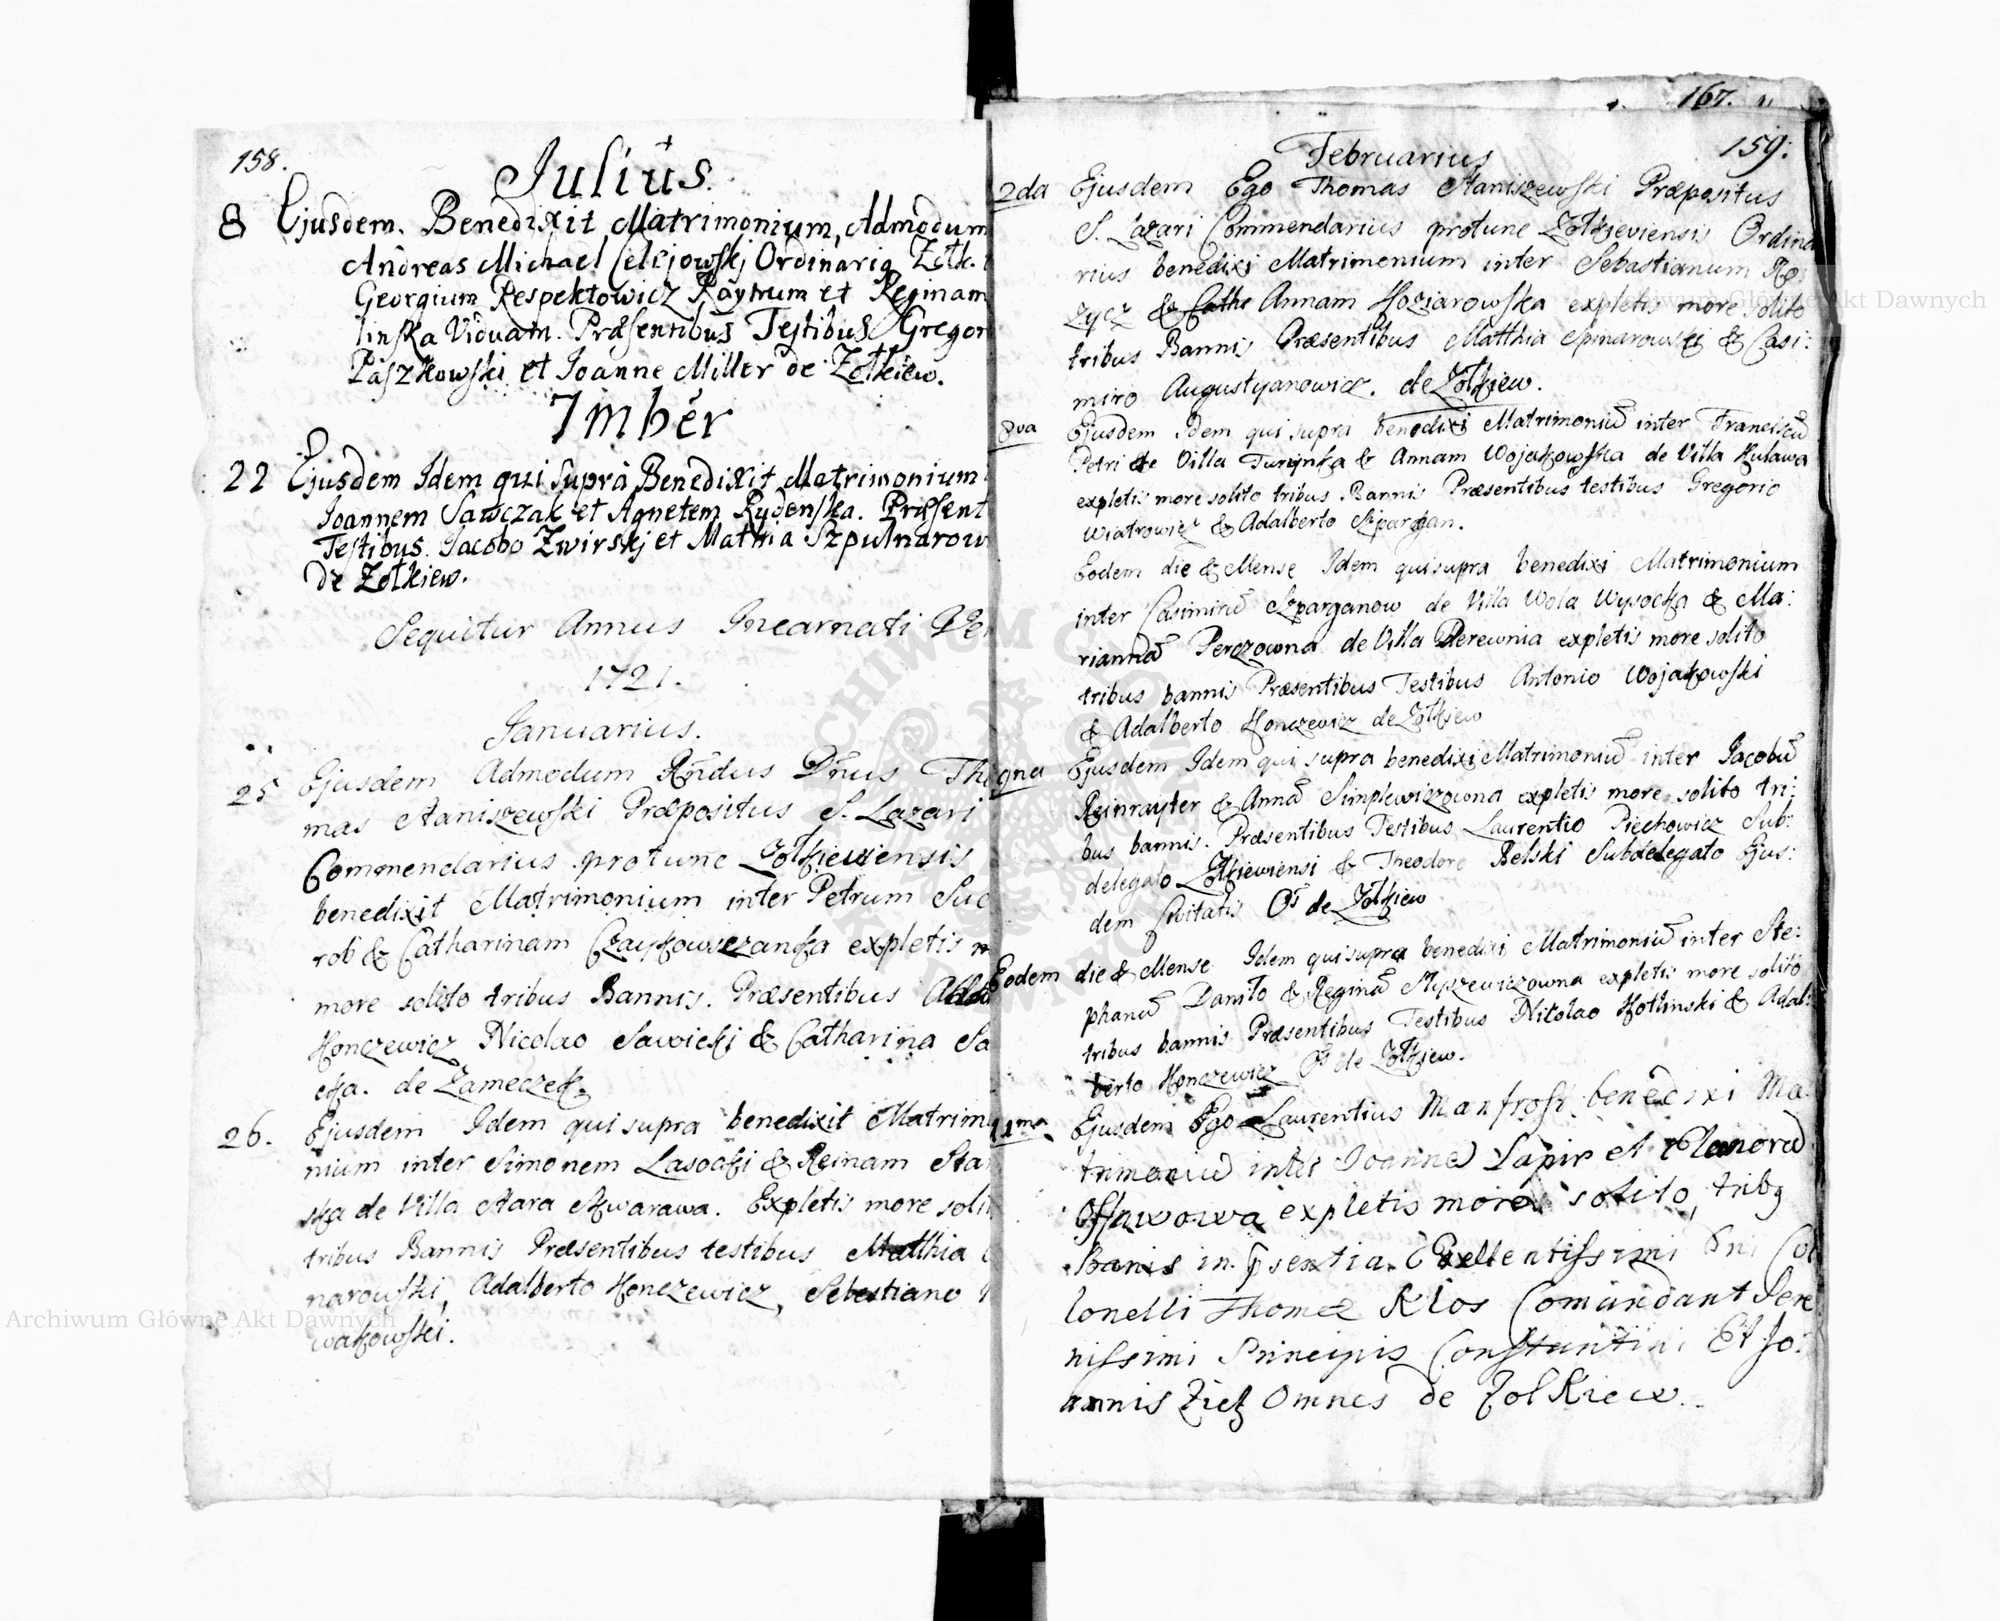 158.
Julius.
8 Ejusdem. Benedixit Matrimonium, Admodum
Andreas Michael Celejowskj Ordinariq Zołk.
Georgium Respektowicz Raytrum et Reginam
linska Viduam. Præsentibus Testibus Gregor
Paszkowski et Joanne Miller de Zołkiew.
7mber
22 Ejusdem Idem qui supra Benedixit Matrimonium
Joannem Sawczak et Agnetem Rydenska. Præsent
Testibus. Jacobo Zwirskj et Mathia Szpulnarow
de Zołkiew.
Sequitur Annus Incarnati Ver
1721.
Januarius.
25 Ejusdem Admodum Rndus Dnus Tho
mas Staniszewski Præpositus S. Lazari
Commendarius protunc Zołkieviensis
benedixit Matrimonium inter Petrum Suc
rob & Catharinam Czaykowszczanka expletis
more solito tribus Bannis. Præsentibus
Honczewicz Nicolao Sawicki & Catharina Sa
cka. de Zameczek
26. Ejusdem Idem qui supra benedixit Matrimo
nium inter Simonem Lasocki & Reinam Sta
ska de Villa Stara Skwarawa. Expletis more soli
tribus Bannis Præsentibus testibus Matthia
narowski, Adalberto Honczewicz, Sebestiano
wakowski.
167.
159.
Februarius
2da Ejusdem Ego Thomas Staniszewski Præpositus
S. Lazari Commendarius protunc Zołkieviensis Ordina
rius benedixi Matrimonium inter Sebastianum Ro
zycz & Cathe Annam Koziarowska expletis more solito
tribus Bannis Præsentibus Matthia Spinarowski & Casi:
miro Augustyanowicz. de Zołkiew.
8va Ejusdem Idem qui supra benedixi Matrimoniu inter Franciscu
Petri de Villa Turynka & Annam Wojakowska de Villa Kulawa
expletis more solito tribus Bannis Præsentibus testibus Gregorio
Wiatrowicz & Adalberto Szpargan.
Eodem die & Mense Idem qui supra benedixi Matrimonium
inter Casimiru Szparganow de Villa Wola Wysocka & Ma:
rianna Perczowna de Villa Derewnia expletis more solito
tribus bannis Præsentibus Testibus Antonio Wojakowski
& Adalberto Honczewicz de Zołkiew
9na Ejusdem Idem qui supra benedixi Matrimoniu inter Jacobu
Reinrayter & Anna Simplewiczowna expletis more solito tri:
bus bannis. Præsentibus Testibus Laurentio Piechowicz Sub:
delegato Zołkieviensi & Theodoro Belski Subdelegato Ejus:
dem Civitatis Os de Zołkiew
Eodem die & Mense Idem qui supra benedixi Matrimoniu inter Ste:
phanu Daniło & Regina Myszewiczowna expletis more solito
tribus bannis Præsentibus Testibus Nikolao Kotlinski & Adal:
berto Honczewicz Os de Zołkiew.
11ma Ejusdem Ego Laurentius Manfrosi benedixi Ma
trimoniu inter Joanne Lapir et Elanora
expletis more solito, tribq
Banis in psentia Exellentissimi Dni Co
lonelli Thomæ Klos Comandant Sere
nissimi Principis Constantini Et Jo:
annis Zietz Omnes de Zolkiew.
Archiwum Główne Akt Dawnych
Archiwum Główne Akt Dawnych